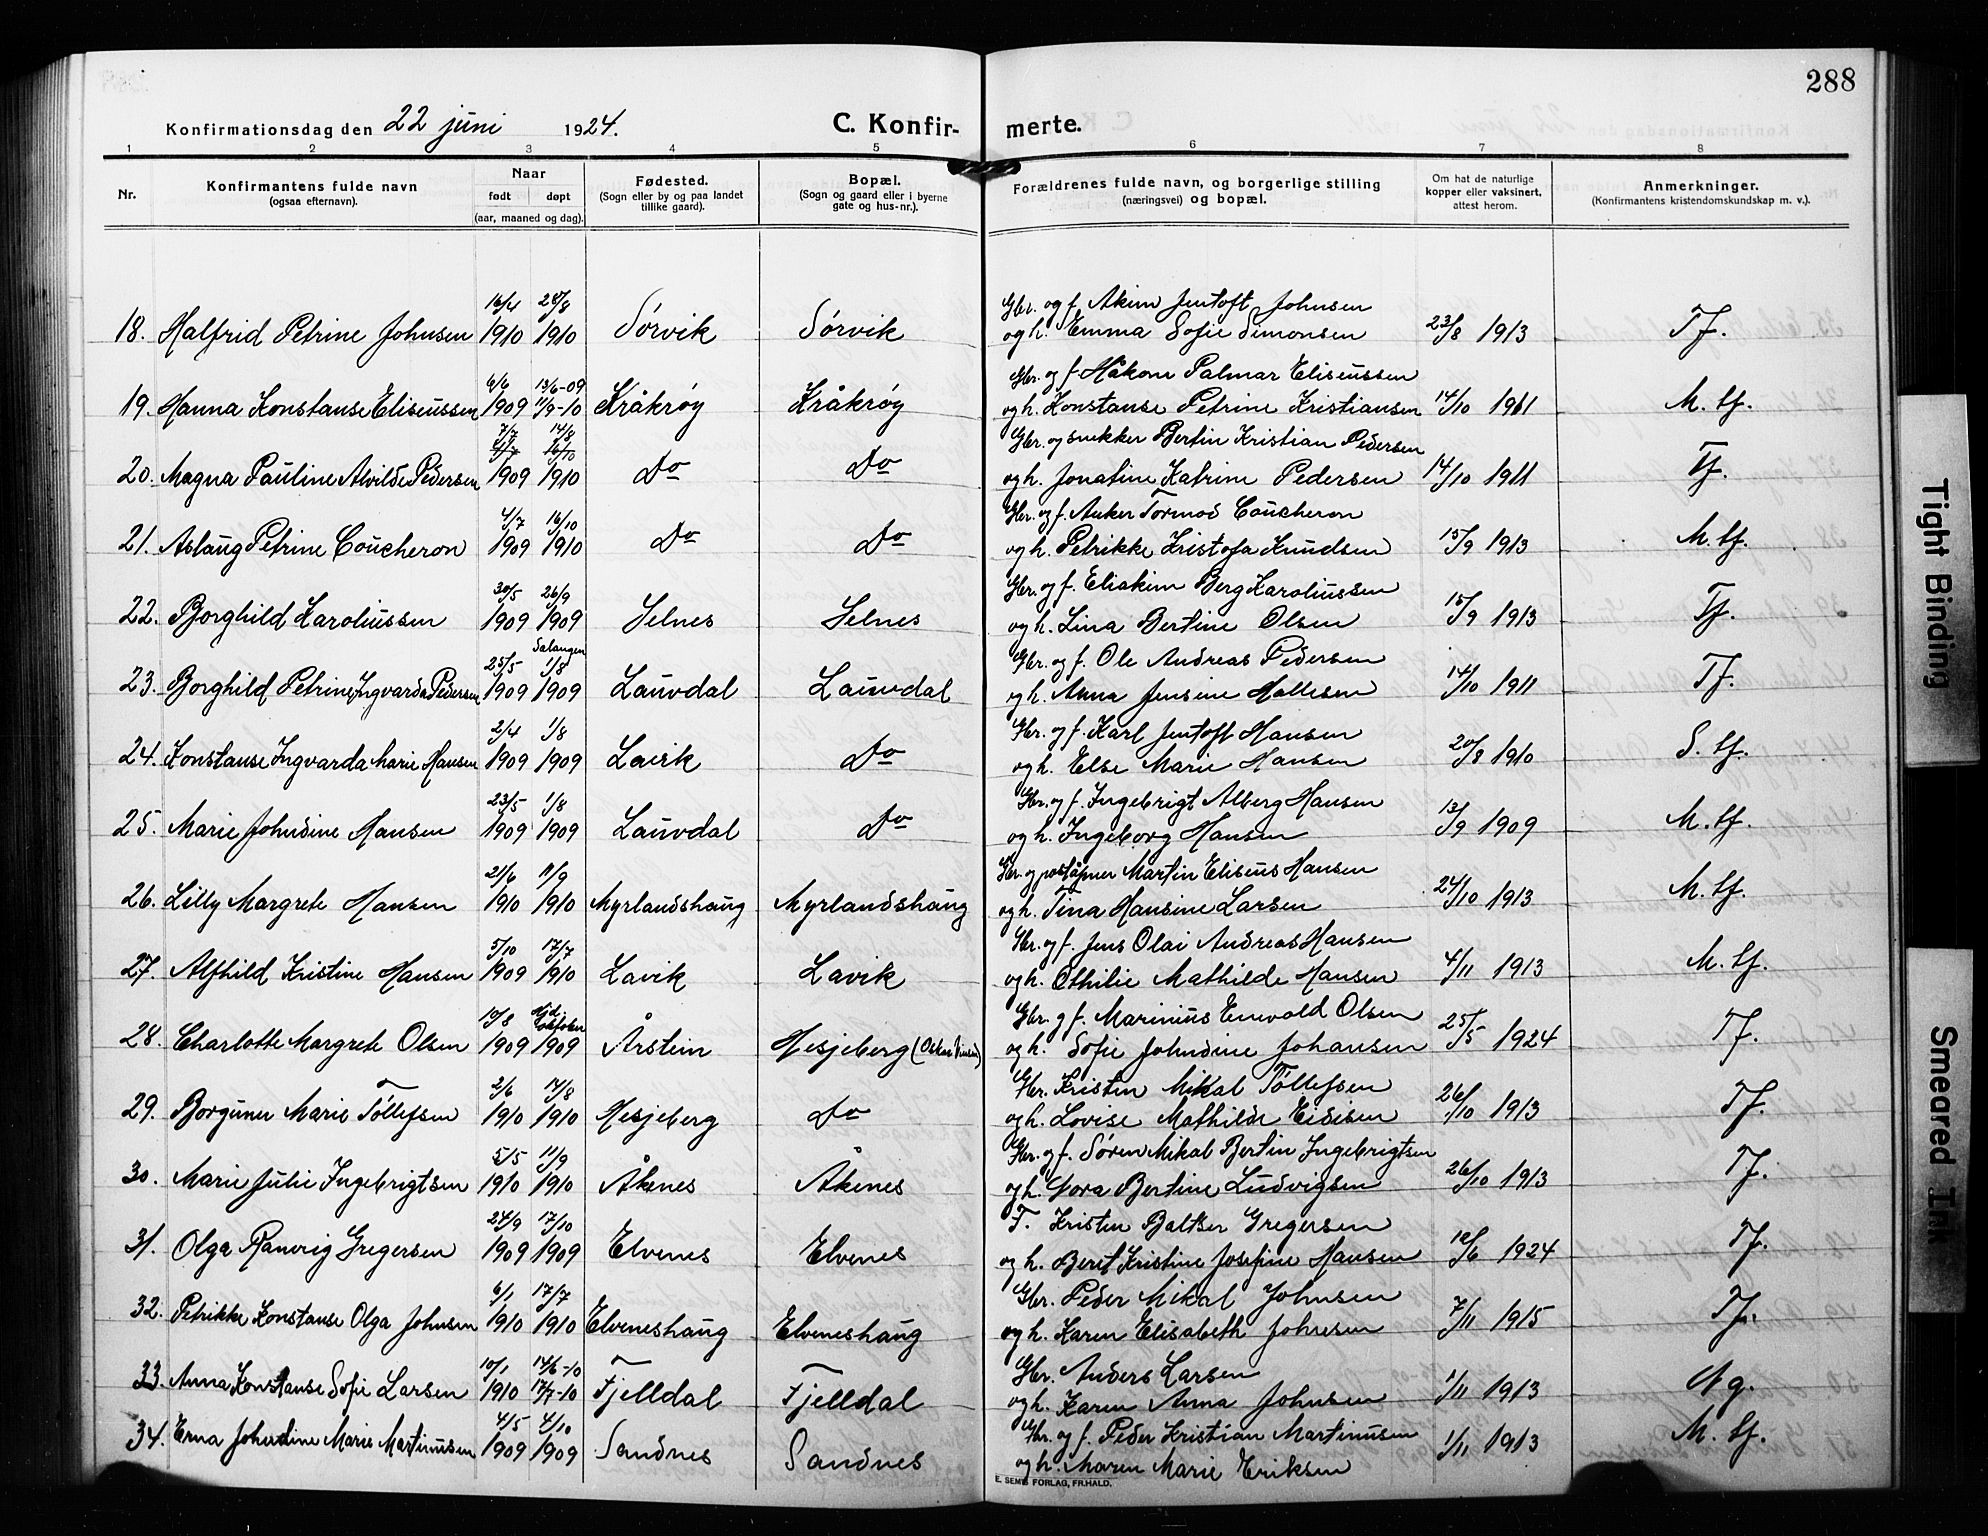 288
Konfirmationsdag den 22 juni 1924.
C. Konfir- merte.
1 2 3 4 5 6 7 8
Nr.
Konfirmantens fulde navn
(ogsaa efternavn).
Naar
født døpt
(aar, maaned og dag).
Fødested.
(Sogn eller by og paa landet
tillike gaard).
Bopæl.
(Sogn og gaard eller i byerne
gate og hus-nr.).
Forældrenes fulde navn, og borgerlige stilling
(næringsvei) og bopæl.
Om hat de naturlige
kopper eller vaksinert,
attest herom.
Anmerkninger.
(Konfirmantens kristendomskundskap m. v.).
16/4 28/8 Gbr. og f. Akim Jentoft Johnsen
18. Halfrid Petrine Johnsen 1910 1910 Sørvik Sørvik og h. Emma Sofie Simonsen 23/8 1913 Tf.
6/6 13/6-09 Gbr. og f. Håkon Palmar Eliseussen
19. Hanna Konstanse Eliseussen 1909 11/9-10 Kråkrøy Kråkrøy og h. Konstanse Petrine Kristiansen 14/10 1911 M. tf.
7/7 14/8 Gbr. og snekker Bertin Kristian Pedersen
4/7 16/10
20. Magna Pauline Alvilde Pedersen 1909 1910 Do Do og h. Jonatine Katrine Pedersen 14/10 1911 Tf.
4/7 16/10 Gbr. og f. Anker Tormod Coucheron
21. Aslaug Petrine Coucheron 1909 1910 Do Do og h. Petrikke Kristofa Knudsen 15/9 1913 M. tf.
30/5 26/9 Gbr. og f. Eliakim Berg Karoliussen
22. Borghild Karoliussen 1909 1909 Selnes Selnes og h. Lina Bertine Olsen 15/9 1913 Tf.
Salangen
25/5 1/8 Gbr. og f. Ole Andreas Pedersen
23. Borghild Petrine Ingvarda Pedersen 1909 1909 Lauvdal Lauvdal og h. Anna Jensine Hallesen 14/10 1911 Tf.
2/4 1/8 Gbr. og f. Karl Jentoft Hansen
24. Konstanse Ingvarda Marie Hansen 1909 1909 Lavik Do og h. Else Marie Hansen 20/8 1910 S. tf.
23/5 1/8 Gbr. og f. Ingebrigt Alberg Hansen
25. Marie Johndine Hansen 1909 1909 Lauvdal Do og h. Ingeborg Hansen 13/9 1909 M. tf.
21/6 11/9 Gbr. og poståpner Martin Eliseus Hansen
26. Lilly Margrete Hansen 1910 1910 Myrlandshaug Myrlandshaug og h. Tina Hansine Larsen 24/10 1913 M. tf.
5/10 17/7 Gbr. og f. Jens Olai Andreas Hansen
27. Alfhild Kristine Hansen 1909 1910 Lavik Lavik og h. Othilie Mathilde Hansen 4/11 1913 M. tf.
10/8 Gbr. g f. Marinius Enevold Olsen
28. Charlotte Margrete Olsen 1909 1909 Årstein Hesjeberg og h. Sofie Johndine Johansen 25/5 1924 Tf.
2/6 14/8 Gbr. Kristen Mikal Tøllefsen
29. Borguner Marie Tøllefsen 1910 1910 Hesjeberg Do og h. Lovise Mathilde Eidisen 26/10 1913 Tf.
5/5 11/9 Gbr. og f. Søren Mikal Bertin Ingebrigtsen
30. Marie Julie Ingebrigtsen 1910 1910 Åkenes Åkenes og h. Nora Bertine Ludvigsen 26/10 1913 Tf.
24/9 17/10 F. Kristen Baltser Gregersen
31. Olga Ranveig Gregersen 1909 1909 Elvenes Elvenes og h. Beret Kristine Josefine Hansen 10/6 1924 Tf.
6/1 17/7 Gbr. Peder Mikal Johnsen
32. Petrikke Konstanse Olga Johnsen 1910 1910 Elveneshaug Elveneshaug og h. Karen Elisabeth Johnsen 7/11 1915 Tf.
10/1 14/6-10 Gbr. Anders Larsen
33. Anna Konstanse Sofie Larsen 1910 17/7-10 Fjelldal Fjelldal og h. Karen Anna Johnsen 1/11 1913 Ng.
4/5 4/10 Gbr. og f. Peder Kristian Martinusen
34. Erna Johndine Marie Martinusen 1909 1909 Sandnes Sandnes og h. Maren Marie Eriksen 1/11 1913 M. tf.
E. SEMS FORLAG, FR.HALD.
Tight Binding
Smeared Ink